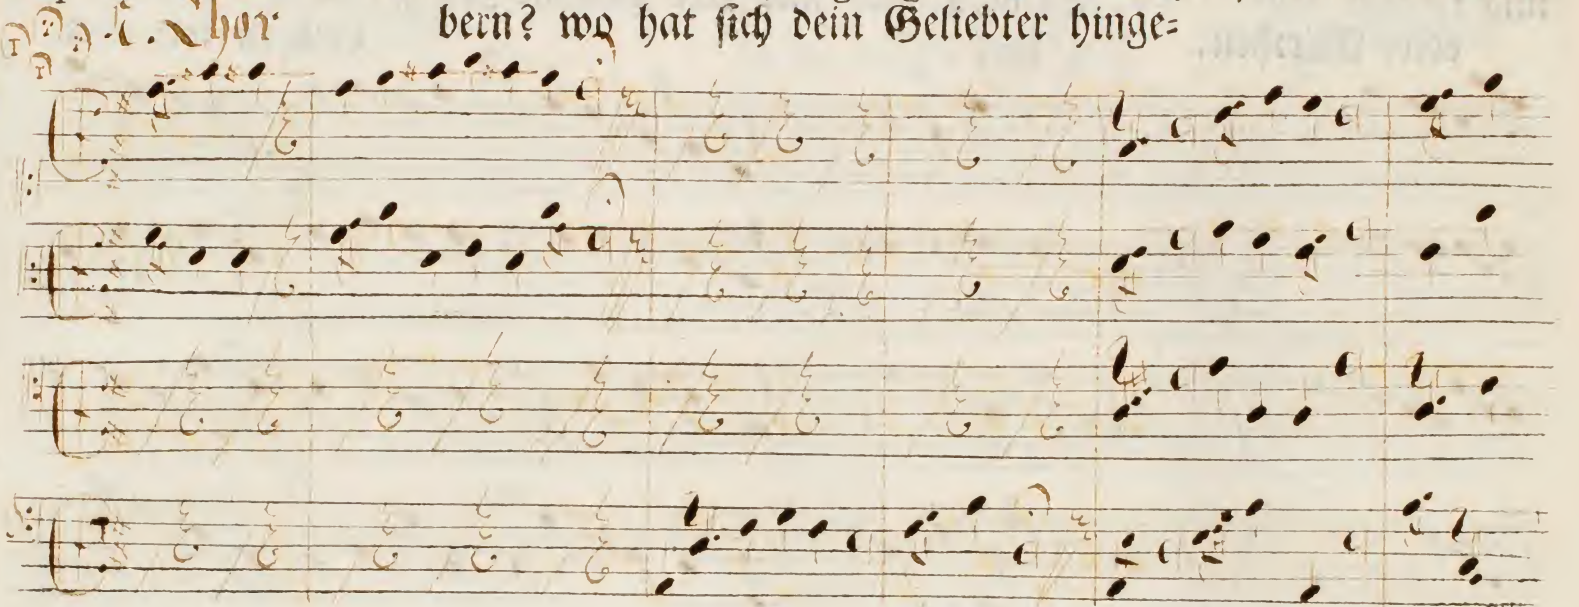 A. Chor bern? wo hat sich dein Geliebter hinge=